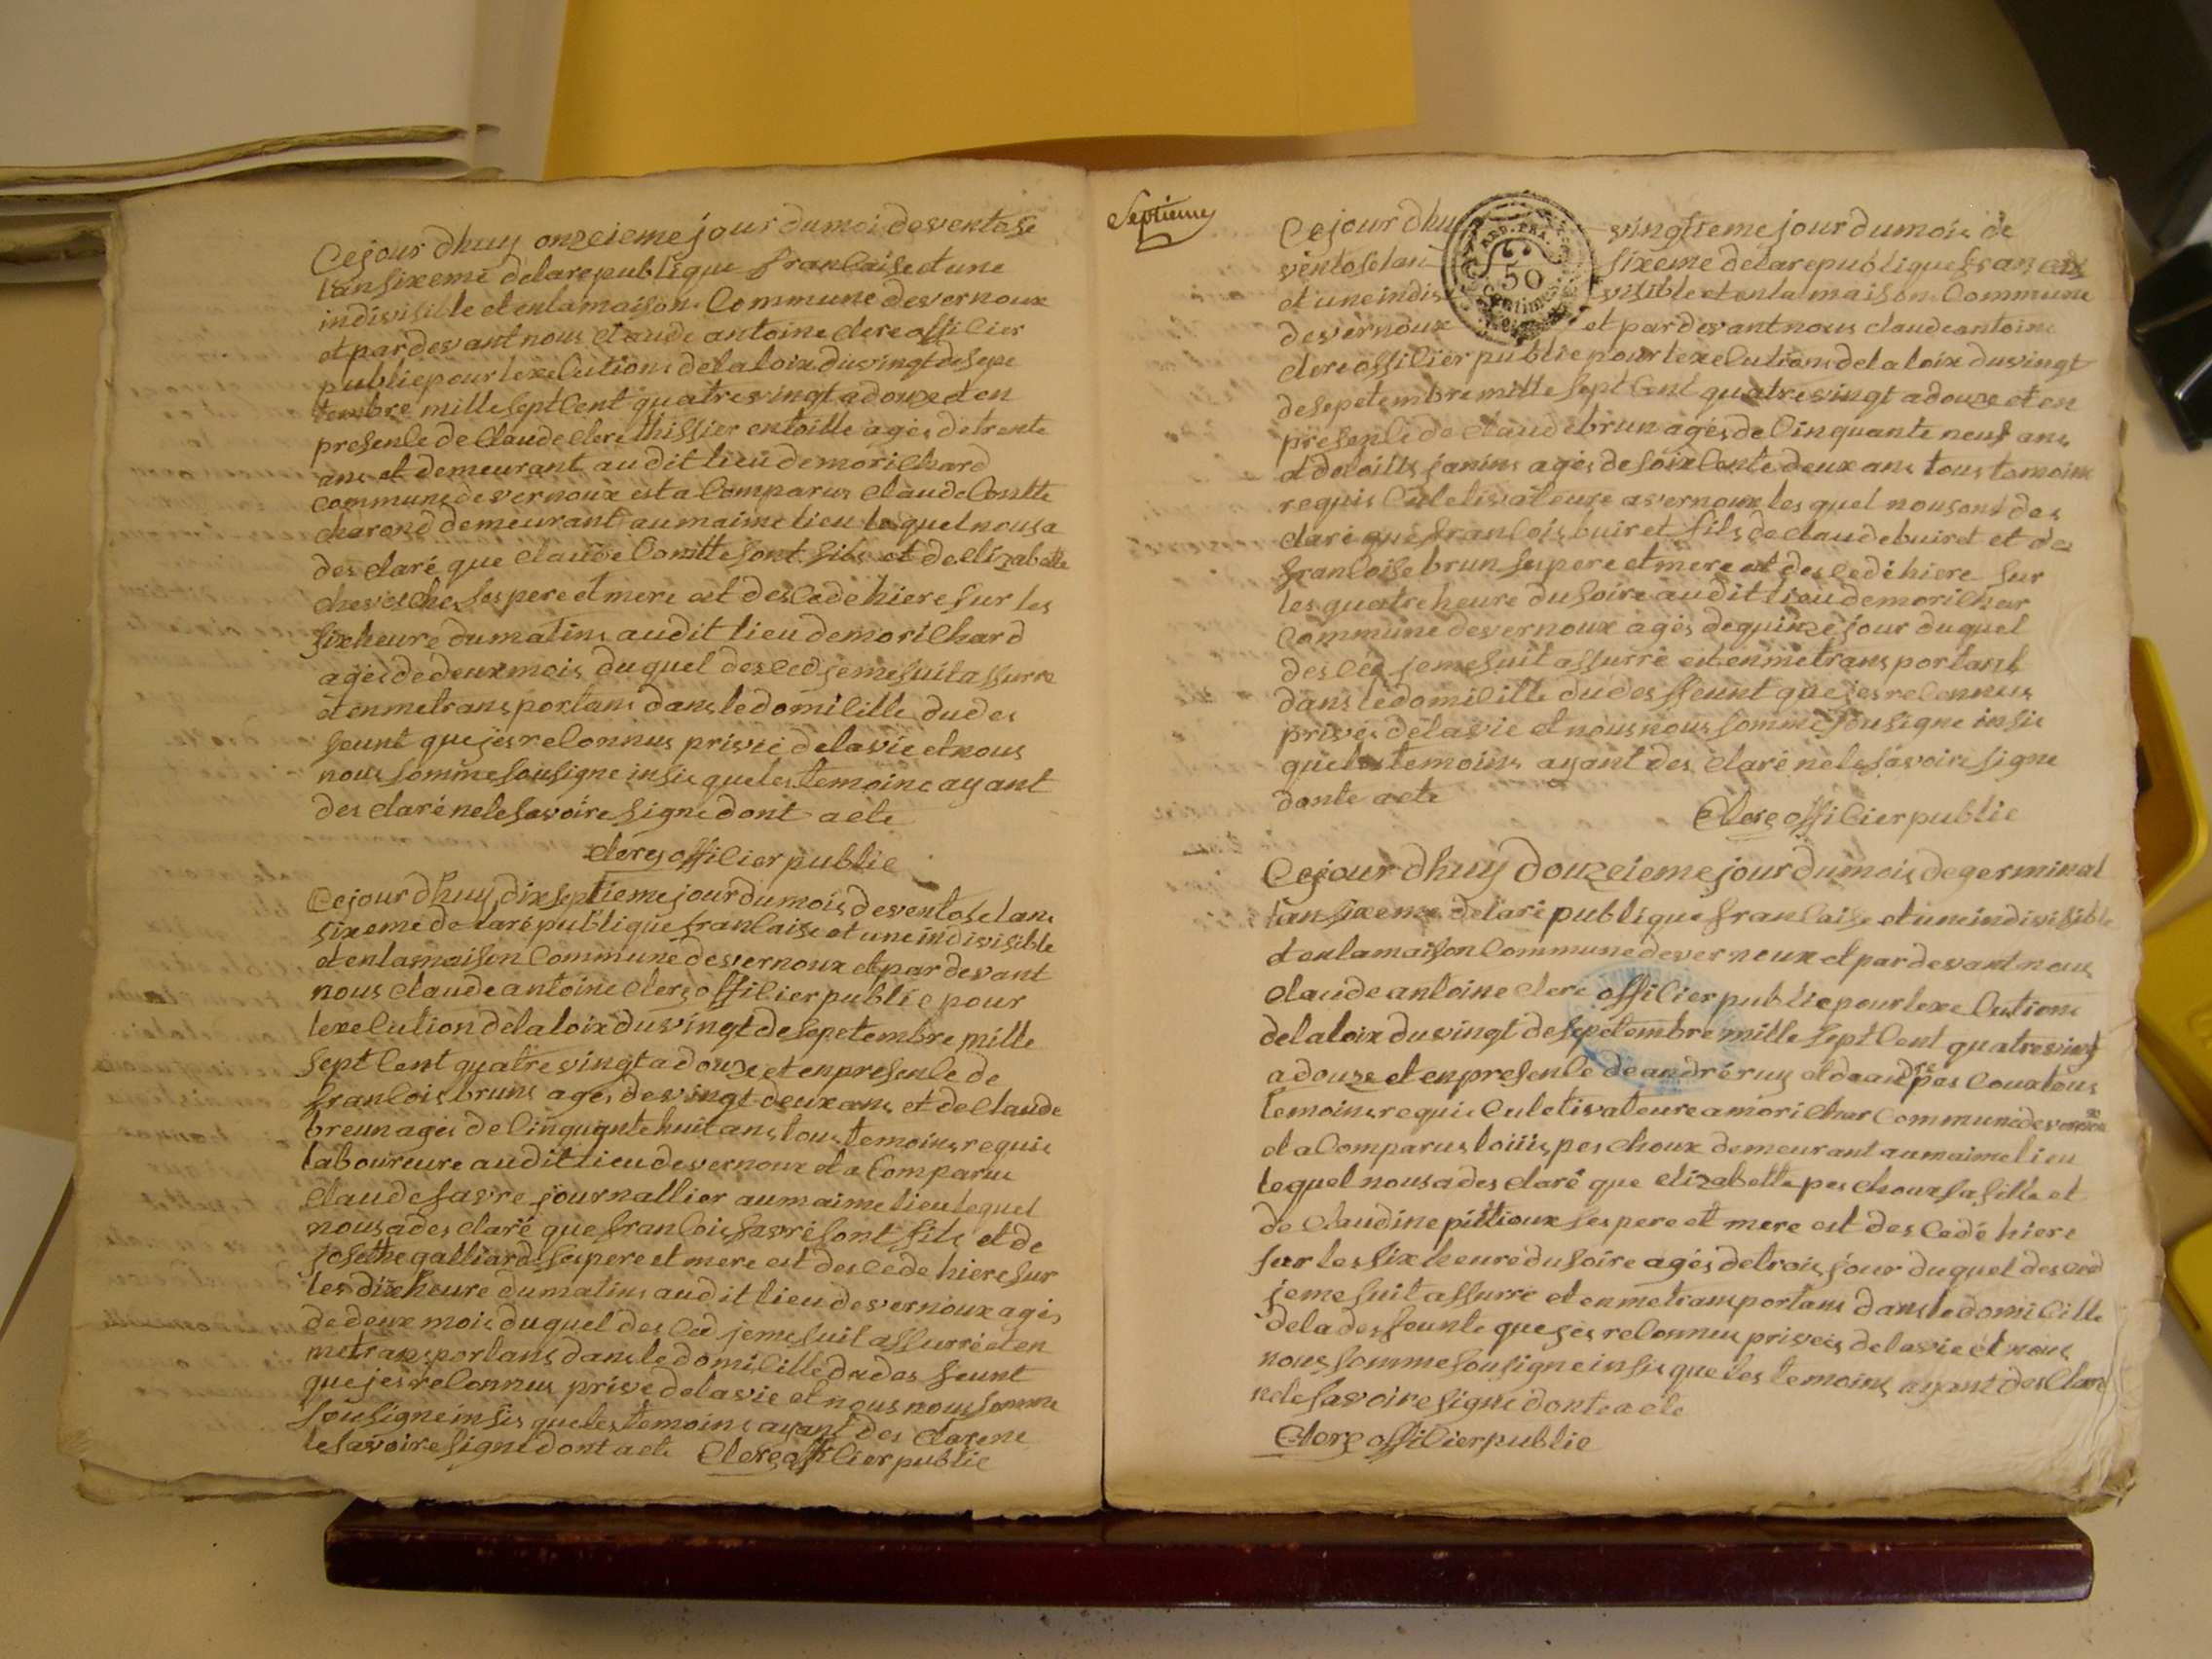 Cejour dhuy onzeieme jour dumoi deventose
lansixeme delarepublique francaise et une
indivisible et enlamaison Commune devernoux
et pardevant nous claude antoine clerc officier
publicpour lexecutions delaloix duvingt desepe
tembre mille sept cent quatrevingt adouze et en
presence de claude clerc thissier entoille ages detrente
ans et demeurant audit lieu demorilhard
commune devernoux est a comparus claude Contte
charond demeurant aumaime lieu lequel nousa
des claré que claude Contte sont fils et delizabette
cheveche ses pere et mere est descede hiere sur les
sixheure dumatins audit lieu demorilhard
ages dedeuxmois duquel desced jemesuit assurre
et enmetransportans dansledomicille dudes
feunt que jesreconnus privée delavie et nous
nous somme sousigne insis queles temoins ayant
des claré nelesavoire signe dont acte
clerc officier public
Cejour dhuy dixseptieme jour dumois deventose lans
sixeme de larépublique francaise et uneindivisible
et enlamaison Commune devernoux et par devant
nous claude antoine clerc officier public pour
lexecution delaloix duvingt desepetembre mille
sept cent quatre vingt adouze et enpresence de
francois bruns ages devingt deuxans et de claude
breun ages de cinquante huit ans tous temoins requis
laboureure audit lieu devernoux et a Comparue
claude favre journallier aumaime lieu lequel
nousades claré que francois favre sont fils et de
josethe galliard ses pere et mere est descede hiere sur
les dix heure dumatins audit lieu devernoux ages
dedeux mois duquel desced jemesuit assurré et en
metransportans dansle domicille dudes feunt
que jesreconnus prive delavie et nous nous somme
sousigne insis queles temoins ayant des clarene
lesavoire signe dont acte Clerc officier public
Septieme
Cejour dhuy vingtieme jour dumois de
ventose lan sixeme delarepublique francais
et uneindis visible et enlamaison Commune
devernoux et pardevant nous claude antoine
clerc officier public pour lexecutions delaloix duvingt
desepetembre mille sept cent quatrevingt adouze et en
presence de claude brun ages de cinquante neuf ans
et deloills janins ages desoixcente deux ans tous temoins
requis Culetivateure avernoux lesquel nousont des
claré que francois buiret fils de claude buiret et de
francoise brun ses pere et mere est descedé hiere sur
les quatre heure dusoire audit lieu demorilhar
Commune devernoux ages dequinze jour duquel
desced jemesuit assurré eit enmetransportant
dans ledomicille dudesffeunt que jesreconnus
privés delavie et nous nous somme sousigne insis
queles temoins ayant des claré nele savoire signe
donte acte
Clerc officier public
Cejour dhuy douzeieme jour dumois degerminal
lansixeme delare publique francaise et uneindivisible
et enlamaison Commune devernoux et pardevant nous
claude antoine clerc officier public pour lexecutions
delaloix duvingt desepetembre mille sept cent quatrevingt
adouze et enpresence deandré ruy et deandre pes coux tous
temoins requis Culetivateure amorilhar Commune devernoux
et a comparus loiiis pes choux demeurant aumaime lieu
lequel nousades claré que elizabette pes choux sa fille et
de Claudine pittioux ses pere et mere est des cedé hiere
sur les six heure dusoire ages detrois jour duquel desced
jemesuit assurré et enmetransportans dansledomicille
deladesfounte quejes reconnus privées delavie et nous
nous somme sousigne insis que les temoins ayant des claré
nele savoire signe donte acte
Clerc officier public
50
centimes